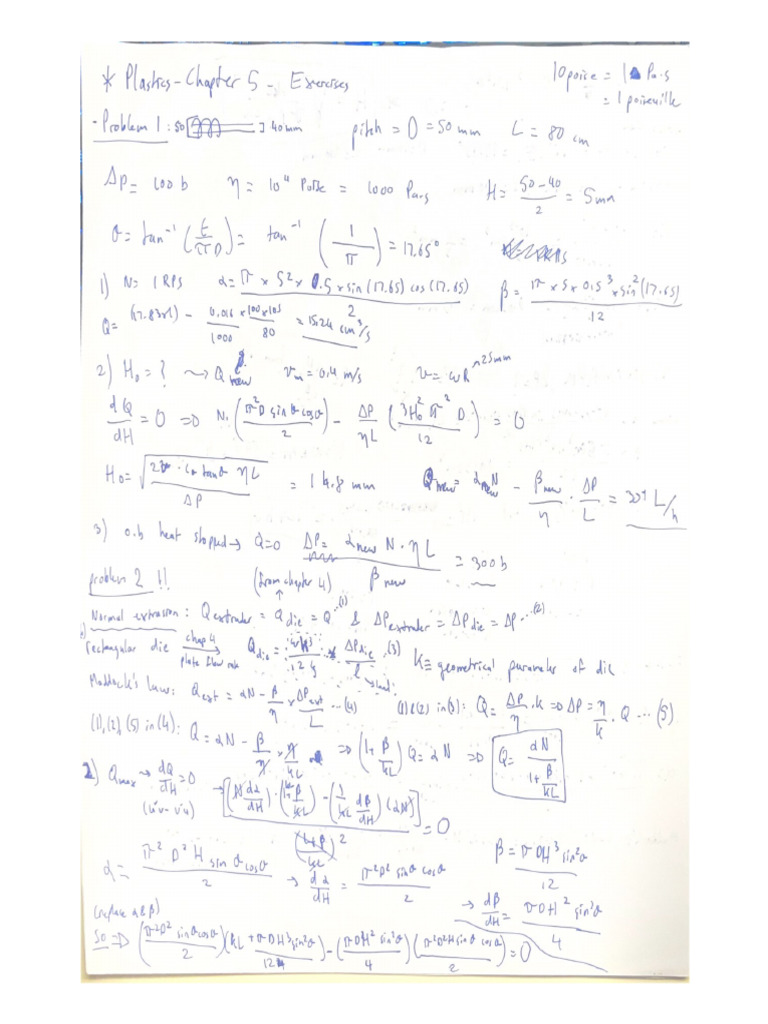 * Plastics - Chapter 5 - Exercises
10 poise = 1 Pa.s
= 1 poiseuille
- Problem 1 : 50 ] 40 mm pitch = D = 50 mm L = 80 cm
Δp = 100 b η = 10⁴ Poise = 1000 Pa.s H = (50-40)/2 = 5 mm
θ = tan⁻¹ (t/πD) = tan⁻¹ (1/π) = 17.65°
1) N = 1 RPS α = π × 5² × 0.5 × sin(17.65) cos(17.65) / 2 β = π × 5 × 0.5³ × sin²(17.65) / 12
Q = (17.83×1) - 0.016/1000 × 100×10⁵/80 = 15.24 cm³/s
2) H₀ = ? → Q new v = 0.4 m/s v = ωR 25mm
dQ/dH = 0 => N. (π²D² sinθ cosθ / 2) - ΔP/ηL (3H₀² π D / 12) = 0
H₀ = √( tanθ ηL / ΔP) = 14.8 mm Q new = α new N - β new/η . ΔP/L = 301 L/h
3) heat stopped → Q=0 ΔP = α new N . η L / β new = 300 b
problem 2 !!
(from chapter 4)
Normal extrusion : Q extruder = Q die = Q ...(1) & ΔP extruder = ΔP die = ΔP ...(2)
rectangular die chap 4 plate flow rate Q die = wh³/12 η × ΔP die / l ...(3) K ≡ geometrical parameter of die
Maddock's law : Q ext = αN - β/η × ΔP ext / L ...(4) (1)&(2) in (3) : Q = ΔP/η . k => ΔP = η/k . Q ... (5)
(1),(2),(5) in (4) : Q = αN - β/η × η/kL => (1+ β/kL) Q = αN => Q = αN / (1+ β/kL)
2) Q max → dQ/dH = 0 → [(N dα/dH) . (1+ β/kL) - (1/kL dβ/dH) (αN)] / (1+ β/kL)² = 0
(u'v - v'u)
α = π² D² H sinθ cosθ / 2 → dα/dH = π² D² sinθ cosθ / 2 β = π D H³ sin²θ / 12
→ dβ/dH = π D H² sin²θ / 4
(replace α & β)
SO => (π²D² sinθ cosθ / 2) (kL + π D H³ sin²θ / 12) - (π D H² sin²θ / 4) (π²D²H sinθ cosθ / 2) = 0